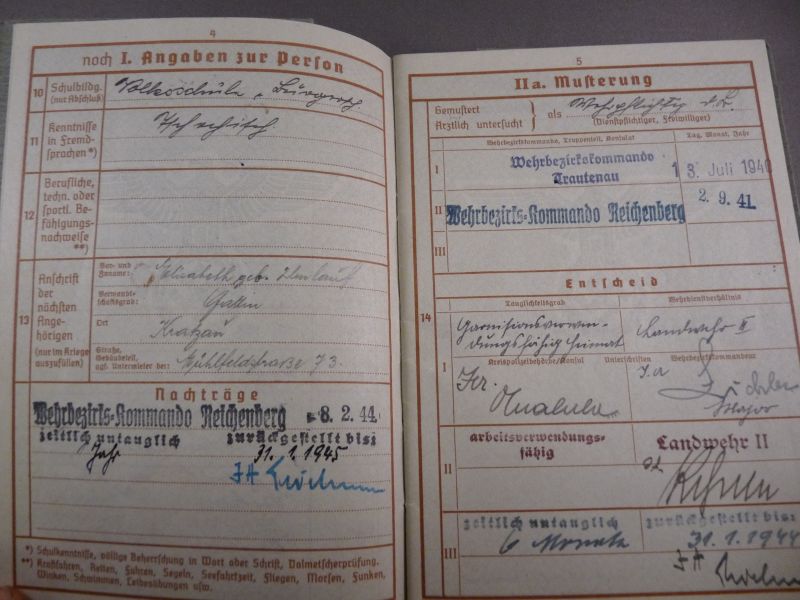 4
noch I. Angaben zur Person
10 Schulbildg. (nur Abschluß)
Volksschule u. Bürgersch
11 Kenntnisse in Fremd-
sprachen *)
Tschechisch
12 Berufliche,
techn. oder
sportl. Be-
fähigungs-
nachweise
**)
13 Anschrift
der
nächsten
Ange-
hörigen
(nur im Kriege
auszufüllen)
Vor- und
Zuname:
Elisabeth geb. Umlauf
Verwandt-
schaftsgrad:
Gattin
Ort
Kratzau
Straße,
Gebäudeteil,
ggf. Untermieter bei:
Mühlfeldstraße 73.
Nachträge
Wehrbezirks-Kommando Reichenberg - 8. 2. 44
zeitlich untauglich zurückgestellt bis:
Jahr 31. 1. 1945
*) Schulkenntnisse, völlige Beherrschung in Wort oder Schrift, Dolmetscherprüfung.
**) Kraftfahren, Reiten, Fahren, Segeln, Seefahrtzeit, Fliegen, Morsen, Funken,
Winken, Schwimmen, Leibesübungen usw.
5
IIa. Musterung
Gemustert
Ärztlich untersucht
als Wehrpflichtig
(Dienstpflichtiger, Freiwilliger)
Wehrbezirkskommando, Truppenteil, Konsulat
Tag, Monat, Jahr
I Wehrbezirkskommando
Trautenau
13. Juli 1940
II Wehrbezirks-Kommando Reichenberg
2. 9. 41
III
Entscheid
14
Tauglichkeitsgrad
Wehrdienstverhältnis
I Garnisonsverwen-
dungsfähig Heimat
Landwehr II
Kreispolizeibehörde/Konsul
Unterschriften
Wehrbezirkskommandeur
I
Major
II arbeitsverwendungs-
fähig
Landwehr II
III zeitlich untauglich
6 Monate
zurückgestellt bis:
31. 1. 1944